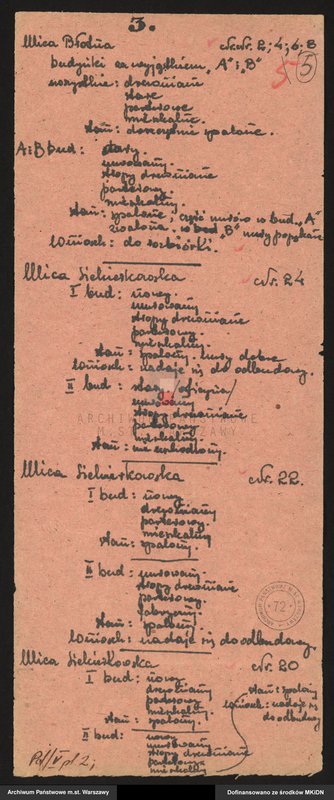 3.
Ulica Błotna NrNr. 2; 4; 6. 8
5
budynki za wyjątkiem „A" i „B"
wszystkie: drewniane
stare
parterowe
mieszkalne.
stan: doszczętnie spalone.
A i B bud: stary.
murowany.
stropy drewniane
parterowy.
mieszkalny.
stan: spalone; część murów w bud. „A"
zwalona. w bud „B" mury popękane
Wniosek: do rozbiórki.
Ulica Sielniskowska Nr. 24
I bud: nowy.
murowany
stropy drewniane
parterowy.
mieszkalny.
stan: spalony. mury dobre
Wniosek: nadaje się do odbudowy.
II bud: stary /oficyna/
murowany
stropy drewniane
parterowy
mieszkalny.
stan: nie uszkodzony.
Ulica Nr. 22.
I bud: nowy
drewniany
parterowy.
mieszkalny
stan: spalony.
II bud: murowany.
stropy drewniane
parterowy.
stan: spalony.
Wniosek: nadaje się do odbudowy.
Ulica Nr. 20
I bud: nowy
drewniany
parterowy
mieszkalny.
stan: spalony.
stan: spalony
Wniosek: nadaje się
do odbudowy
II bud: nowy
murowany
stropy drewniane
parterowy.
mieszkalny
72
ARCHIWUM PAŃSTWOWE
M.ST. WARSZAWY
Archiwum Państwowe m.st. Warszawy
Dofinansowano ze środków MKiDN